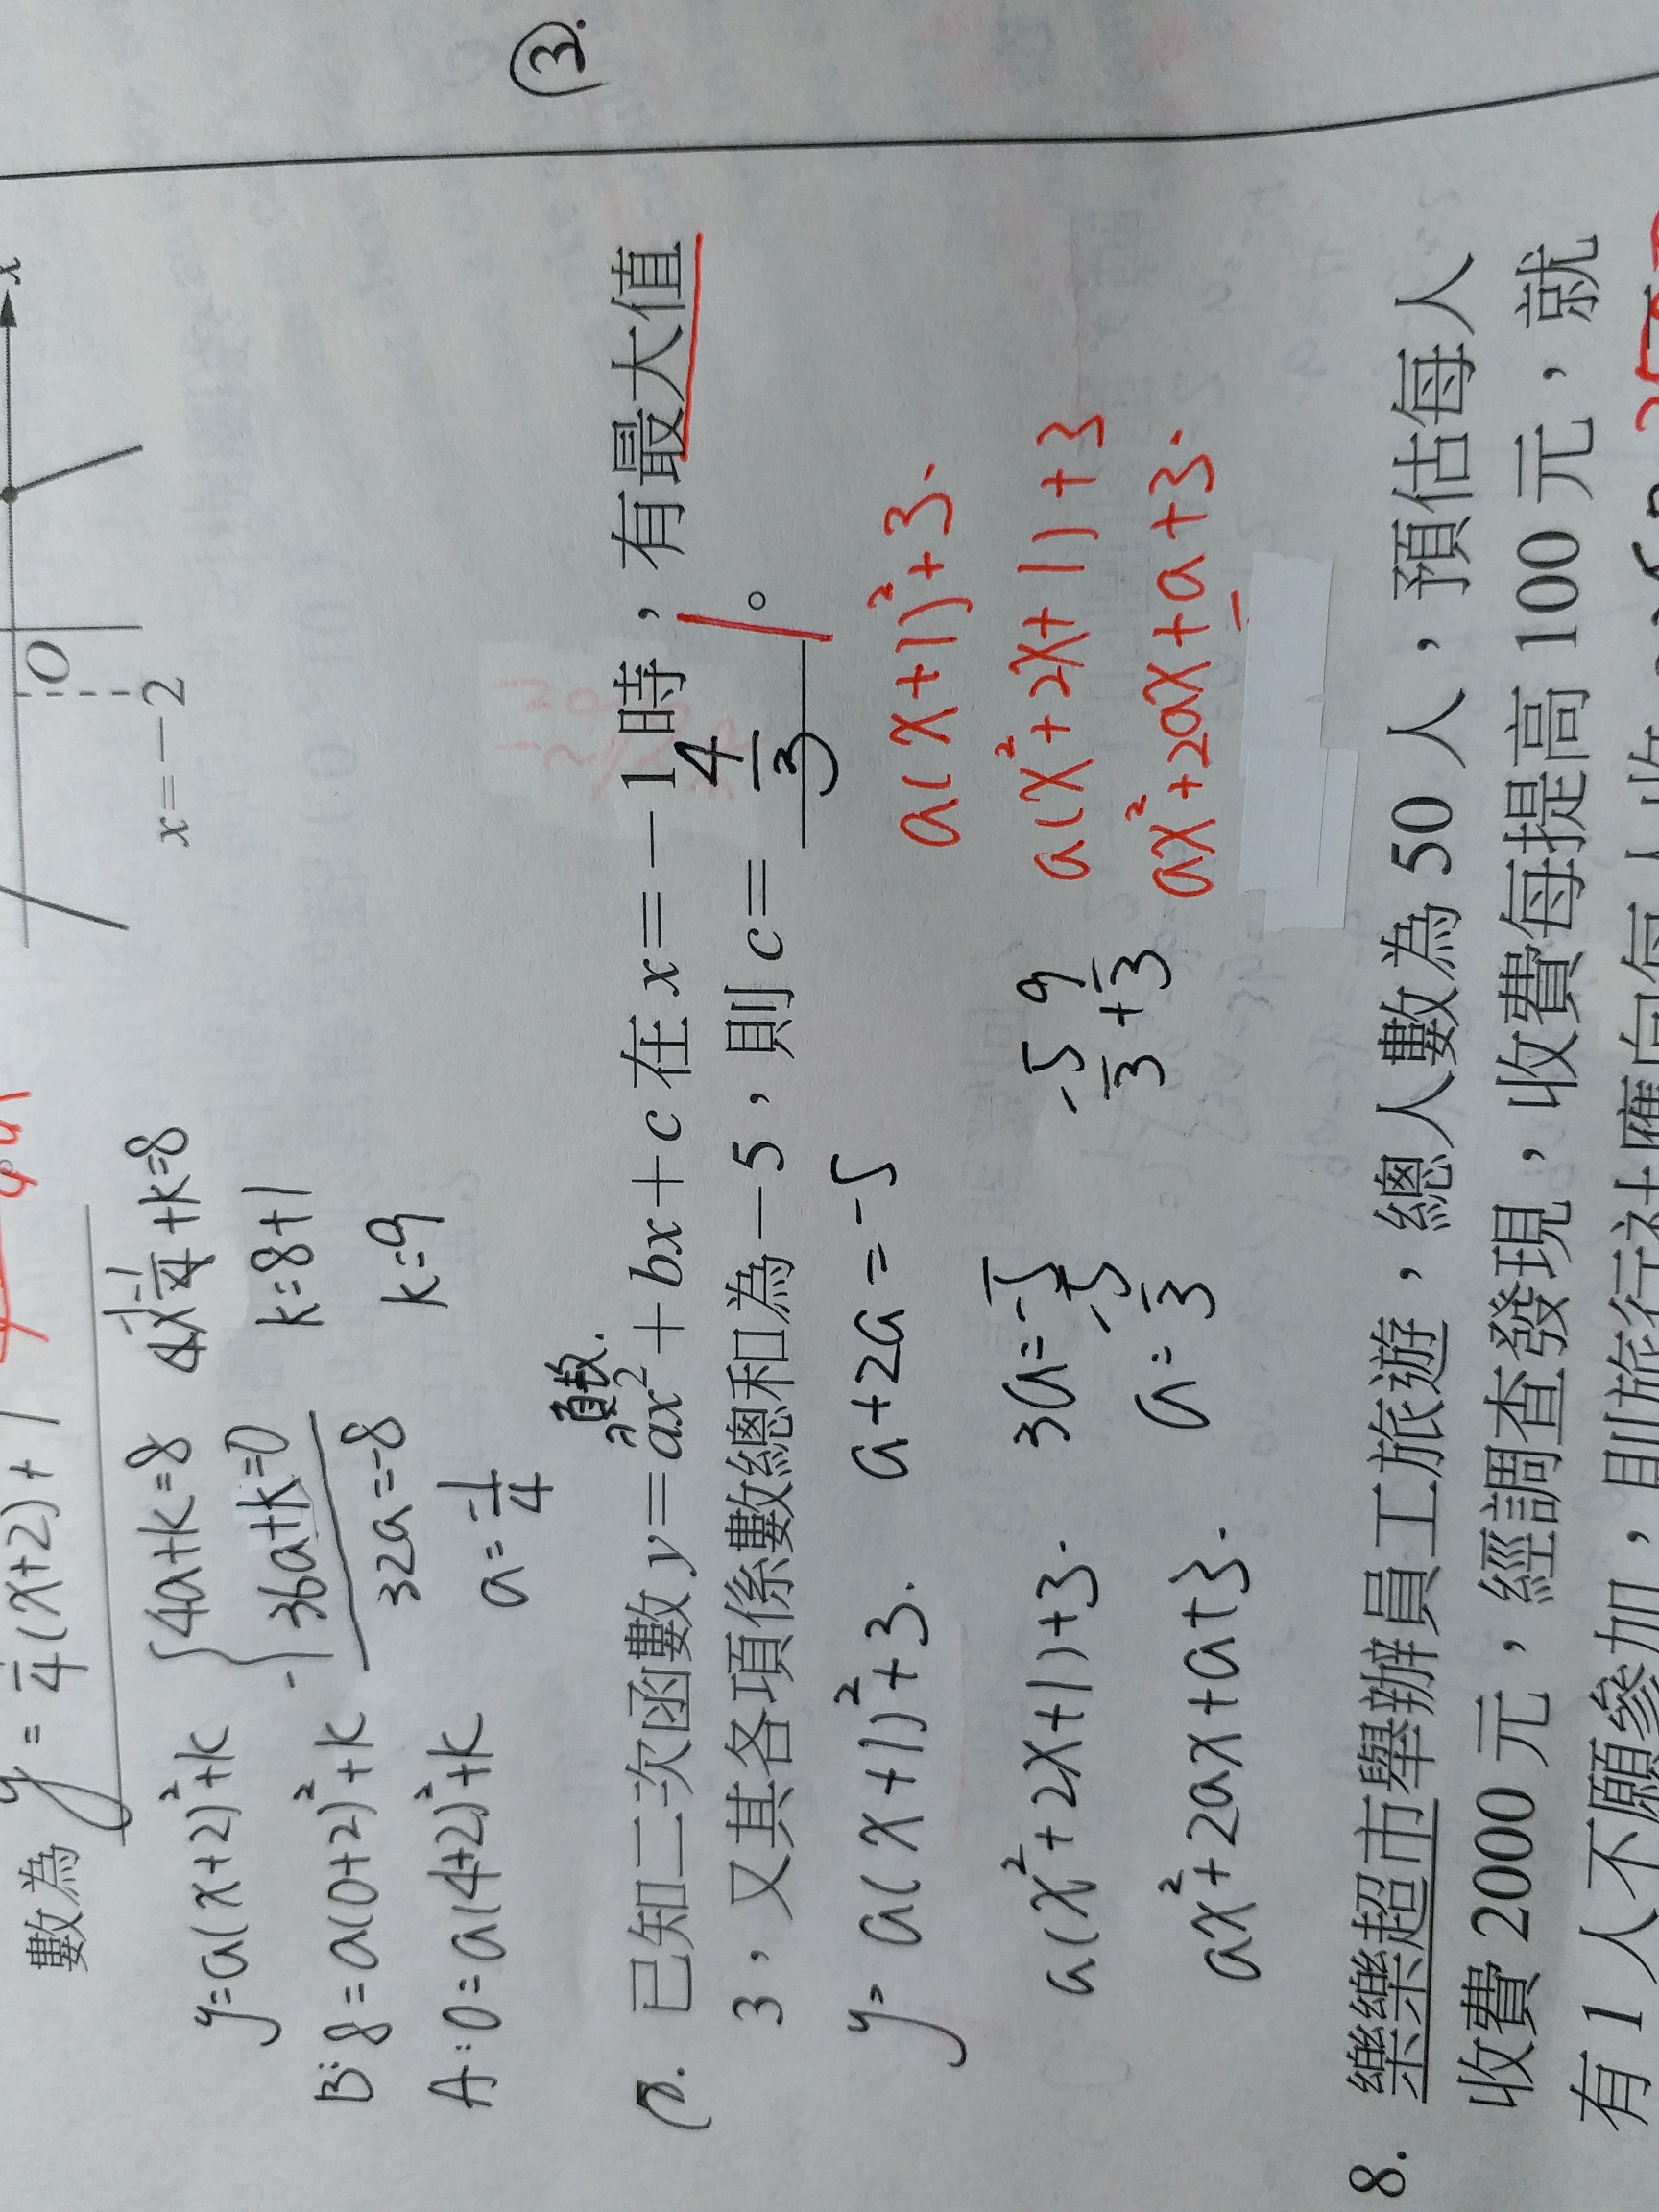 x
O
x=−2
③.
數為 y = 1/4(x+2)+1
y=a(x+2)²+k
B:8=a(0+2)²+k
A:0=a(4+2)²+k
4a+k=8
-36a+k=0
32a=-8
a=-1/4
4×-1/4+k=8
k=8+1
k=9
負數.
7. 已知二次函數 y=ax²+bx+c 在 x=−1 時，有最大值
3，又其各項係數總和為−5，則 c= 4/3 。
y= a(x+1)²+3.
a(x²+2x+1)+3.
ax²+2ax+a+3.
a+2a=-5
3a=-5
a=-5/3
-5/3+9/3
a(x+1)²+3.
a(x²+2x+1)+3
ax²+2ax+a+3.
8. 樂樂超市舉辦員工旅遊，總人數為 50 人，預估每人
收費 2000 元，經調查發現，收費每提高 100 元，就
有 1 人不願參加，則旅行社應向每人收